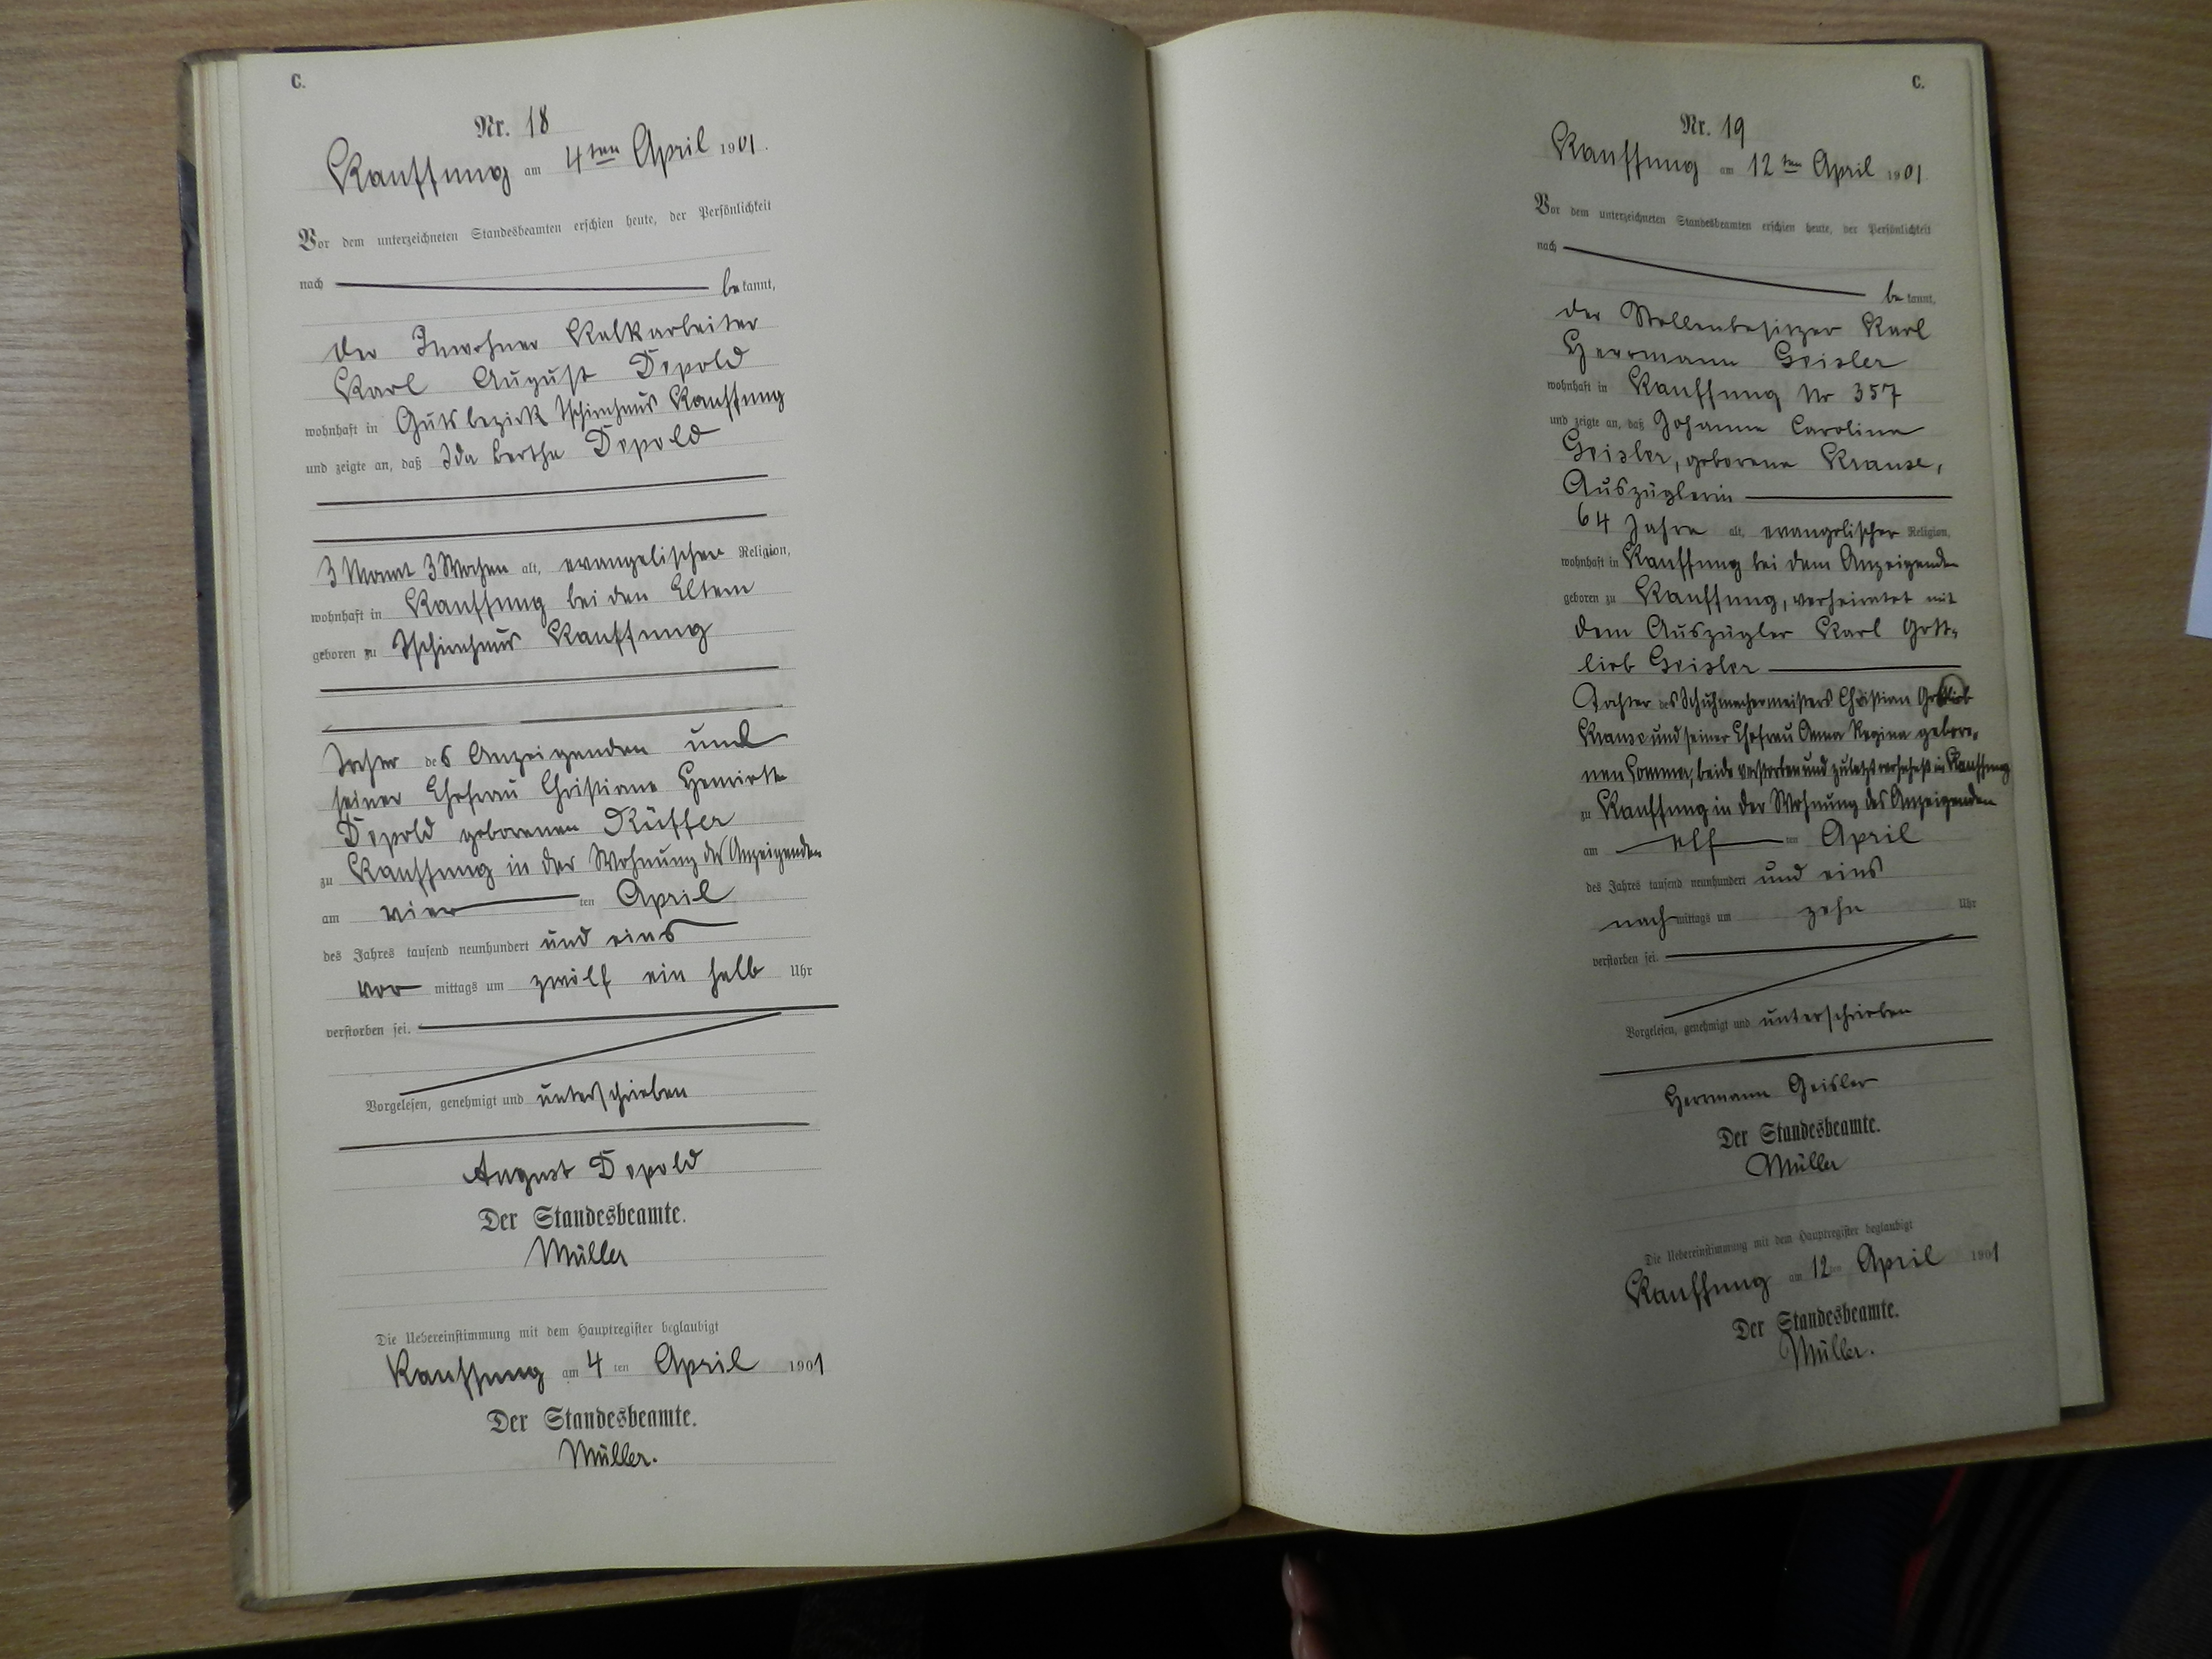 C.
Nr. 18
Kauffung am 4ten April 1901.
Vor dem unterzeichneten Standesbeamten erschien heute, der Persönlichkeit
nach bekannt,
der Inwohner Kalkarbeiter
Karl August Depold
wohnhaft in Gutsbezirk Tschirnhaus Kauffung
und zeigte an, daß Ida Bertha Depold
3 Monat 3 Wochen alt, evangelischer Religion,
wohnhaft in Kauffung bei den Eltern
geboren zu Tschirnhaus Kauffung
Tochter des Anzeigenden und
seiner Ehefrau Christiane Henriette
Depold geborenen Rüffer
zu Kauffung in der Wohnung des Anzeigenden
am vier ten April
des Jahres tausend neunhundert und eins
vor mittags um zwölf ein halb Uhr
verstorben sei.
Vorgelesen, genehmigt und unterschrieben
August Depold
Der Standesbeamte.
Müller
Die Uebereinstimmung mit dem Hauptregister beglaubigt
Kauffung am 4 ten April 1901
Der Standesbeamte.
Müller.
C.
Nr. 19
Kauffung am 12ten April 1901
Vor dem unterzeichneten Standesbeamten erschien heute, der Persönlichkeit
nach bekannt,
der Stellenbesitzer Karl
Herrmann Geisler
wohnhaft in Kauffung Nr 357
und zeigte an, daß Johanne Caroline
Geisler, geborene Krause,
Auszüglerin
64 Jahre alt, evangelischer Religion,
wohnhaft in Kauffung bei dem Anzeigenden
geboren zu Kauffung, verheiratet mit
dem Auszügler Karl Gott-
lieb Geisler
Tochter des Schuhmachermeisters Christian Gottlieb
Krause und seiner Ehefrau Anna Regina gebore-
nen beide verstorben und zuletzt wohnhaft in Kauffung
zu Kauffung in der Wohnung des Anzeigenden
am elf ten April
des Jahres tausend neunhundert und eins
nach mittags um zehn Uhr
verstorben sei.
Vorgelesen, genehmigt und unterschrieben
Herrmann Geisler
Der Standesbeamte.
Müller
Die Uebereinstimmung mit dem Hauptregister beglaubigt
Kauffung am 12 ten April 1901
Der Standesbeamte.
Müller.